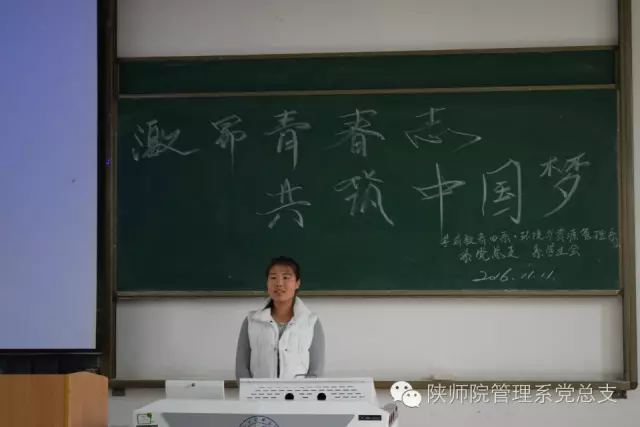 激昂青春志
共筑中国梦
学前教育系·环境与资源管理系
系党总支 系学生会
2016.11.11.
陕师院管理系党总支